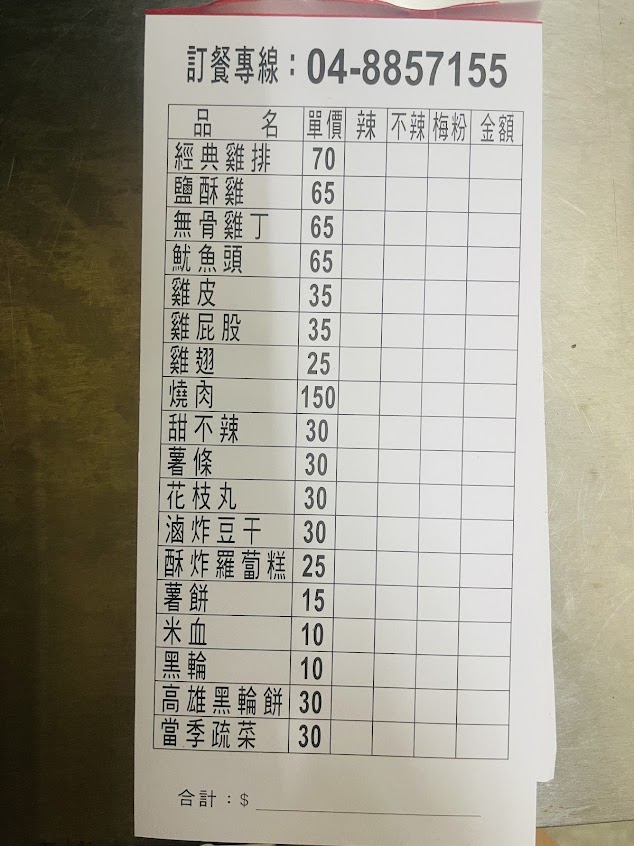 訂餐專線：04-8857155
品 名 單價 辣 不辣 梅粉 金額
經典雞排 70
鹽酥雞 65
無骨雞丁 65
魷魚頭 65
雞皮 35
雞屁股 35
雞翅 25
燒肉 150
甜不辣 30
薯條 30
花枝丸 30
滷炸豆干 30
酥炸羅蔔糕 25
薯餅 15
米血 10
黑輪 10
高雄黑輪餅 30
當季疏菜 30
合計：$